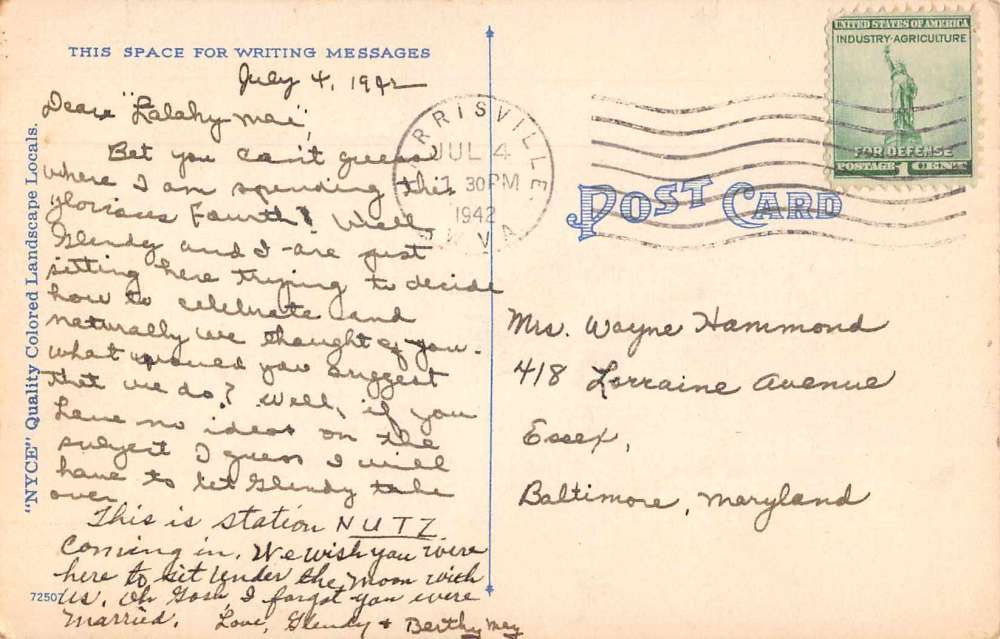 THIS SPACE FOR WRITING MESSAGES
July 4, 1942
Dear "Lalahy mae",
Bet you can't guess
where I am spending this
glorious Fourth? Well,
Glendy and I are just
sitting here trying to decide
how to celebrate and
naturally we thought of you.
what would you suggest
that we do? Well, if you
have no ideas on the
subject I guess I will
have to let Glendy take
over.
This is station NUTZ
coming in. We wish you were
here to sit under the moon with
us. Oh Gosh, I forgot you were
married. Love, Glendy & Berthy Mey
72507
"NYCE" Quality Colored Landscape Locals.
RRISVILLE.
JUL 4
30 PM
1942
W. VA.
UNITED STATES OF AMERICA
INDUSTRY·AGRICULTURE
FOR DEFENSE
POSTAGE 1 CENT
POST CARD
Mrs. Wayne Hammond
418 Lorraine Avenue
Essex,
Baltimore, Maryland